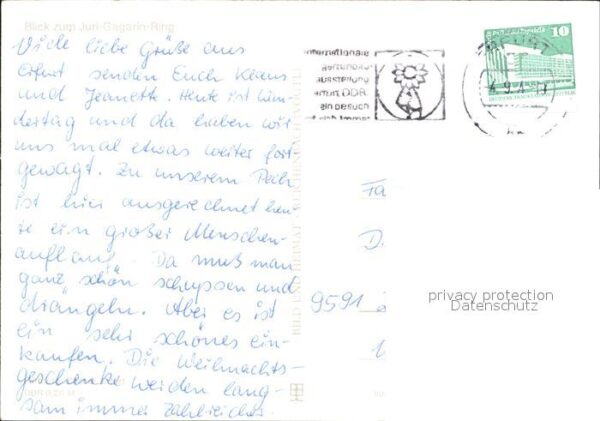 Blick zum Juri-Gagarin-Ring
Viele liebe Grüße aus
Erfurt senden Euch
und Jeanette. Heute ist
dertag und da haben wir
uns mal etwas weiter fort
gewagt. Zu unserem Pech
ist hier ausgerechnet heu-
te ein großer Menschen-
auflauf. Da muß man
ganz schön schupsen und
drängeln. Aber es ist
ein sehr schönes ein-
kaufen. Die Weihnachts-
geschenke werden lang-
sam immer zahlreicher.
internationale
gartenbau-
ausstellung
erfurt DDR
ein besuch
10
BILD UND HEIMAT
Fa
D
9591
privacy protection
Datenschutz